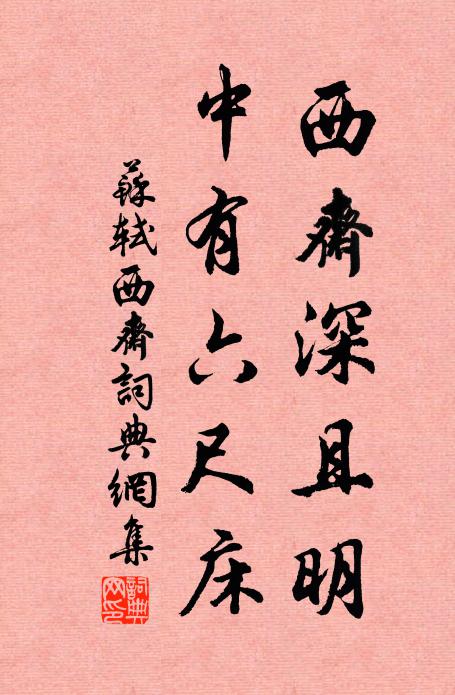 西齋深且明
中有六尺床
蘇軾西齋詞典網集
詞典网印